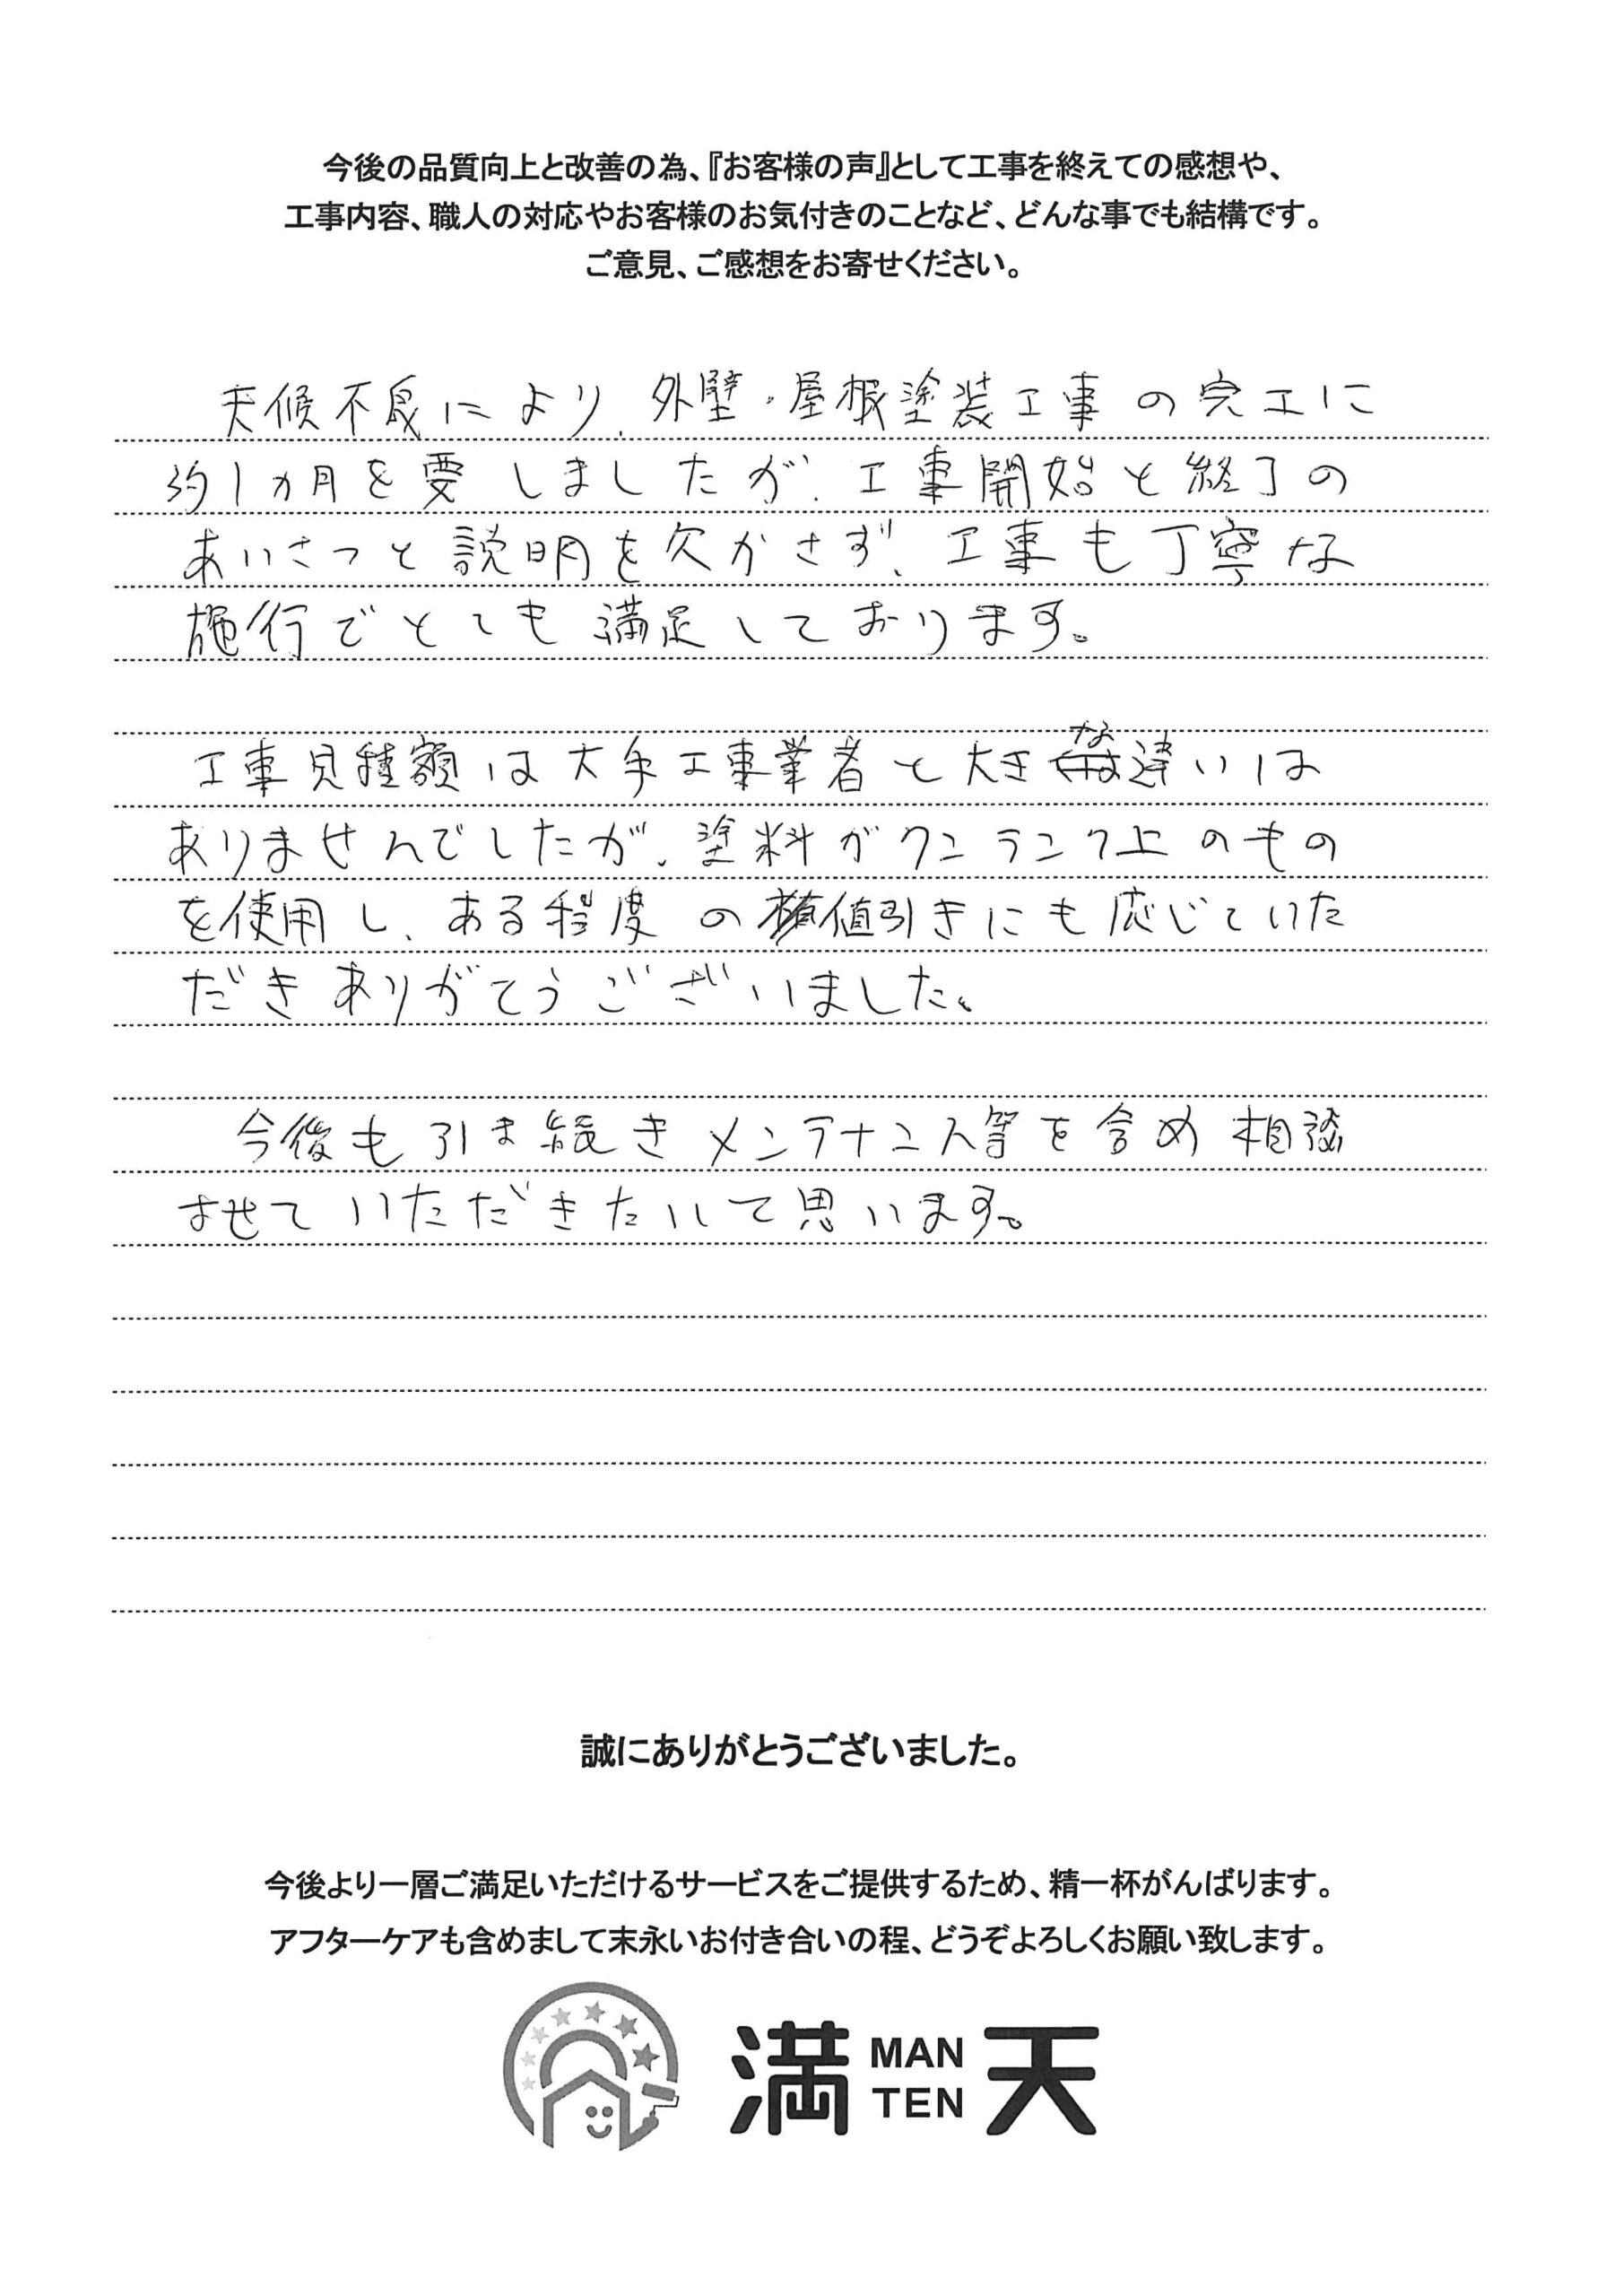 今後の品質向上と改善の為、『お客様の声』として工事を終えての感想や、
工事内容、職人の対応やお客様のお気付きのことなど、どんな事でも結構です。
ご意見、ご感想をお寄せください。
天候不良により、外壁・屋根塗装工事の完工に
約1ヵ月を要しましたが、工事開始と終了の
あいさつと説明を欠かさず、工事も丁寧な
施行でとても満足しております。
工事見積額は大手工事業者と大きな違いは
ありませんでしたが、塗料がワンランク上のもの
を使用し、ある程度の値引きにも応じていた
だきありがとうございました。
今後も引き続きメンテナンス等を含め相談
させていただきたいと思います。
誠にありがとうございました。
今後より一層ご満足いただけるサービスをご提供するため、精一杯がんばります。
アフターケアも含めまして末永いお付き合いの程、どうぞよろしくお願い致します。
満 MAN TEN 天